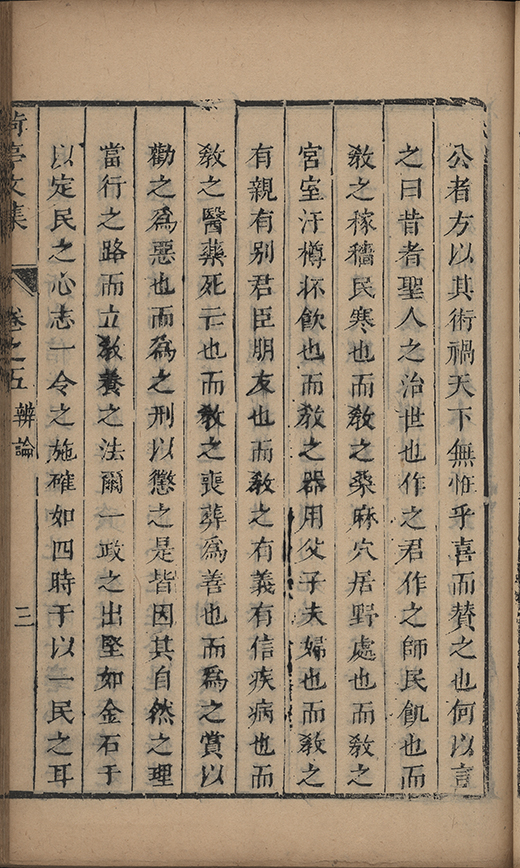 公者方以其術禍天下無怪乎喜而贊之也何以言
之曰昔者聖人之治世也作之君作之師民飢也而
敎之稼穡民寒也而敎之桑麻穴居野處也而敎之
宮室汙樽抔飮也而敎之器用父子夫婦也而敎之
有親有別君臣朋友也而敎之有義有信疾病也而
敎之醫藥死亡也而敎之喪葬爲善也而爲之賞以
勸之爲惡也而爲之刑以懲之是皆因其自然之理
當行之路而立敎養之法爾一政之出堅如金石于
以定民之心志一令之施確如四時于以一民之耳
亭文集 卷之五 辨論 三